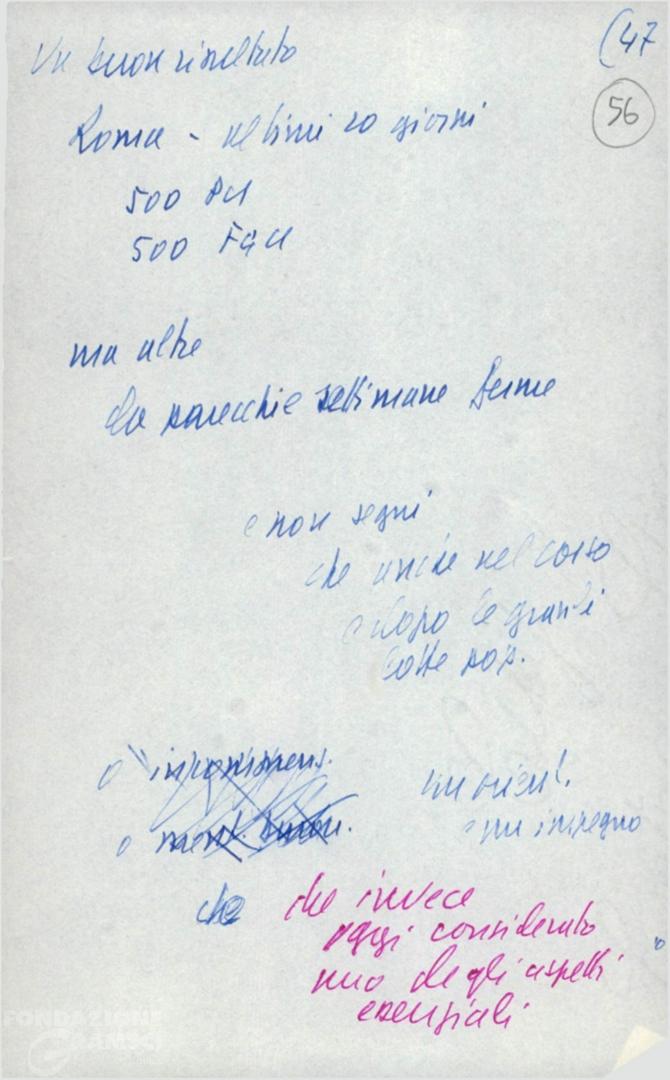 (47
56
Un buon risultato
Roma - ultimi 20 giorni
500 PCI
500 FGCI
ma altre
da parecchie settimane ferme
e non segni
che anche nel corso
e dopo le grandi
lotte pop.
o
o
un orient.
e un impegno
che che invece
oggi considerato
uno degli aspetti
essenziali
FONDAZIONE
GRAMSCI